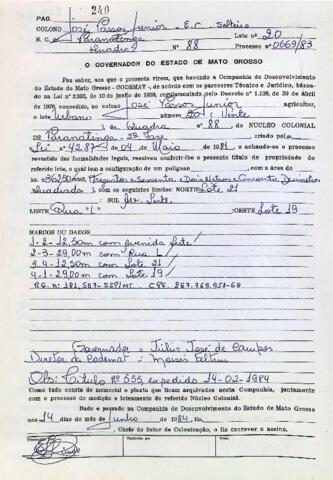 PAG. 240
COLONO José Passos Junior - E.C. Solteiro
N. C. Paranatinga Lote nº 20
Quadra nº 88 Processo nº 0669/83
O GOVERNADOR DO ESTADO DE MATO GROSSO
Faz saber, aos que o presente virem, que havendo a Companhia de Desenvolvimento
do Estado de Mato Grosso - CODEMAT -, de acordo com os pareceres Técnico e Jurídico,
na Lei nº de 10 de Junho de regulamentada pelo Decreto 1.138, de 20 de Abril
de 1970, concedido, ao colono José Passos Junior, agricultor,
o lote Urbano número 20 - Vinte
) da Quadra nº 88 DO NÚCLEO COLONIAL
DE Paranatinga - 3ª Fase criado pela
Lei nº 4287 de 04 de Maio de 1981 e achando-se o processo
revestido das formalidades legais, resolveu conferir-lhe o presente título de propriedade do
referido lote, o qual tem a configuração de um polígono com a área de
362,50 (Trezentos e Sessenta e Dois Metros e Cincoenta Decimetros
Quadrado) com os seguintes limites: NORTE Lote 21
SUL
LESTE Rua "L" OESTE Lote 19
MARCOS OU DADOS
1-2- 12,50m com avenida
2-3- 29,00m com Rua L
3-4- 12,50m com Lote 21
4-1- 29,00m com Lote 19
R.G. nº 181,507-SSP/MT. CPF. 267.769.951-68
Governador: Júlio José de Campos
Diretor da Codemat:
Obs: Titulo nº 555, expedido 14-02-1984
Como tudo consta do memorial e planta que ficam arquivados nesta Companhia, juntamente
com o processo de medição e loteamento do referido Núcleo Colonial.
Dado e passado na Companhia de Desenvolvimento do Estado de Mato Grosso
aos 14 dias do mês de Junho de 1984. Eu,
, Chefe do Setor de Colonização, o fiz escrever e assino.